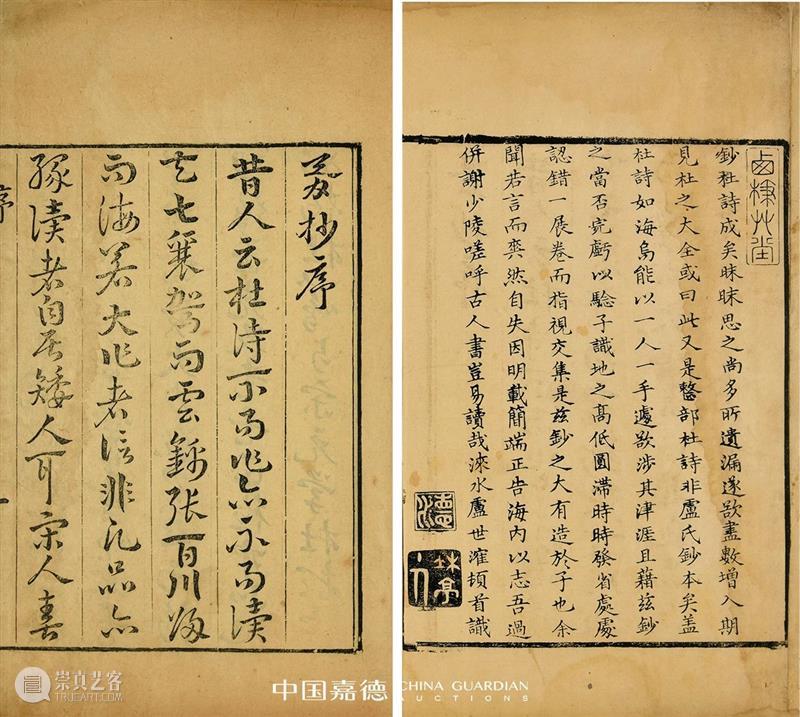 胥抄序
昔人云杜詩不易作亦不易讀
夫七襄駕而雲錦張百川歸
而海若大作者信非凡品亦
緣讀者自居矮人耳宋人
序
艸堂
鈔杜詩成矣昧昧思之尚多所遺漏遂欲盡數增入期
見杜之大全或曰此又是整部杜詩非盧氏鈔本矣蓋
杜詩如海烏能以一人一手遽欲涉其津涯且藉茲鈔
之當否完虧以驗子識地之高低圓滯時時發省處處
認錯一展卷而指視交集是茲鈔之大有造於子也余
聞若言而爽然自失因明載簡端正告海內以志吾過
併謝少陵嗟呼古人書豈易讀哉淶水盧世㴶頓首識
崇真艺客
TRUEART.COM
中国嘉德
CHINA GUARDIAN
AUCTIONS